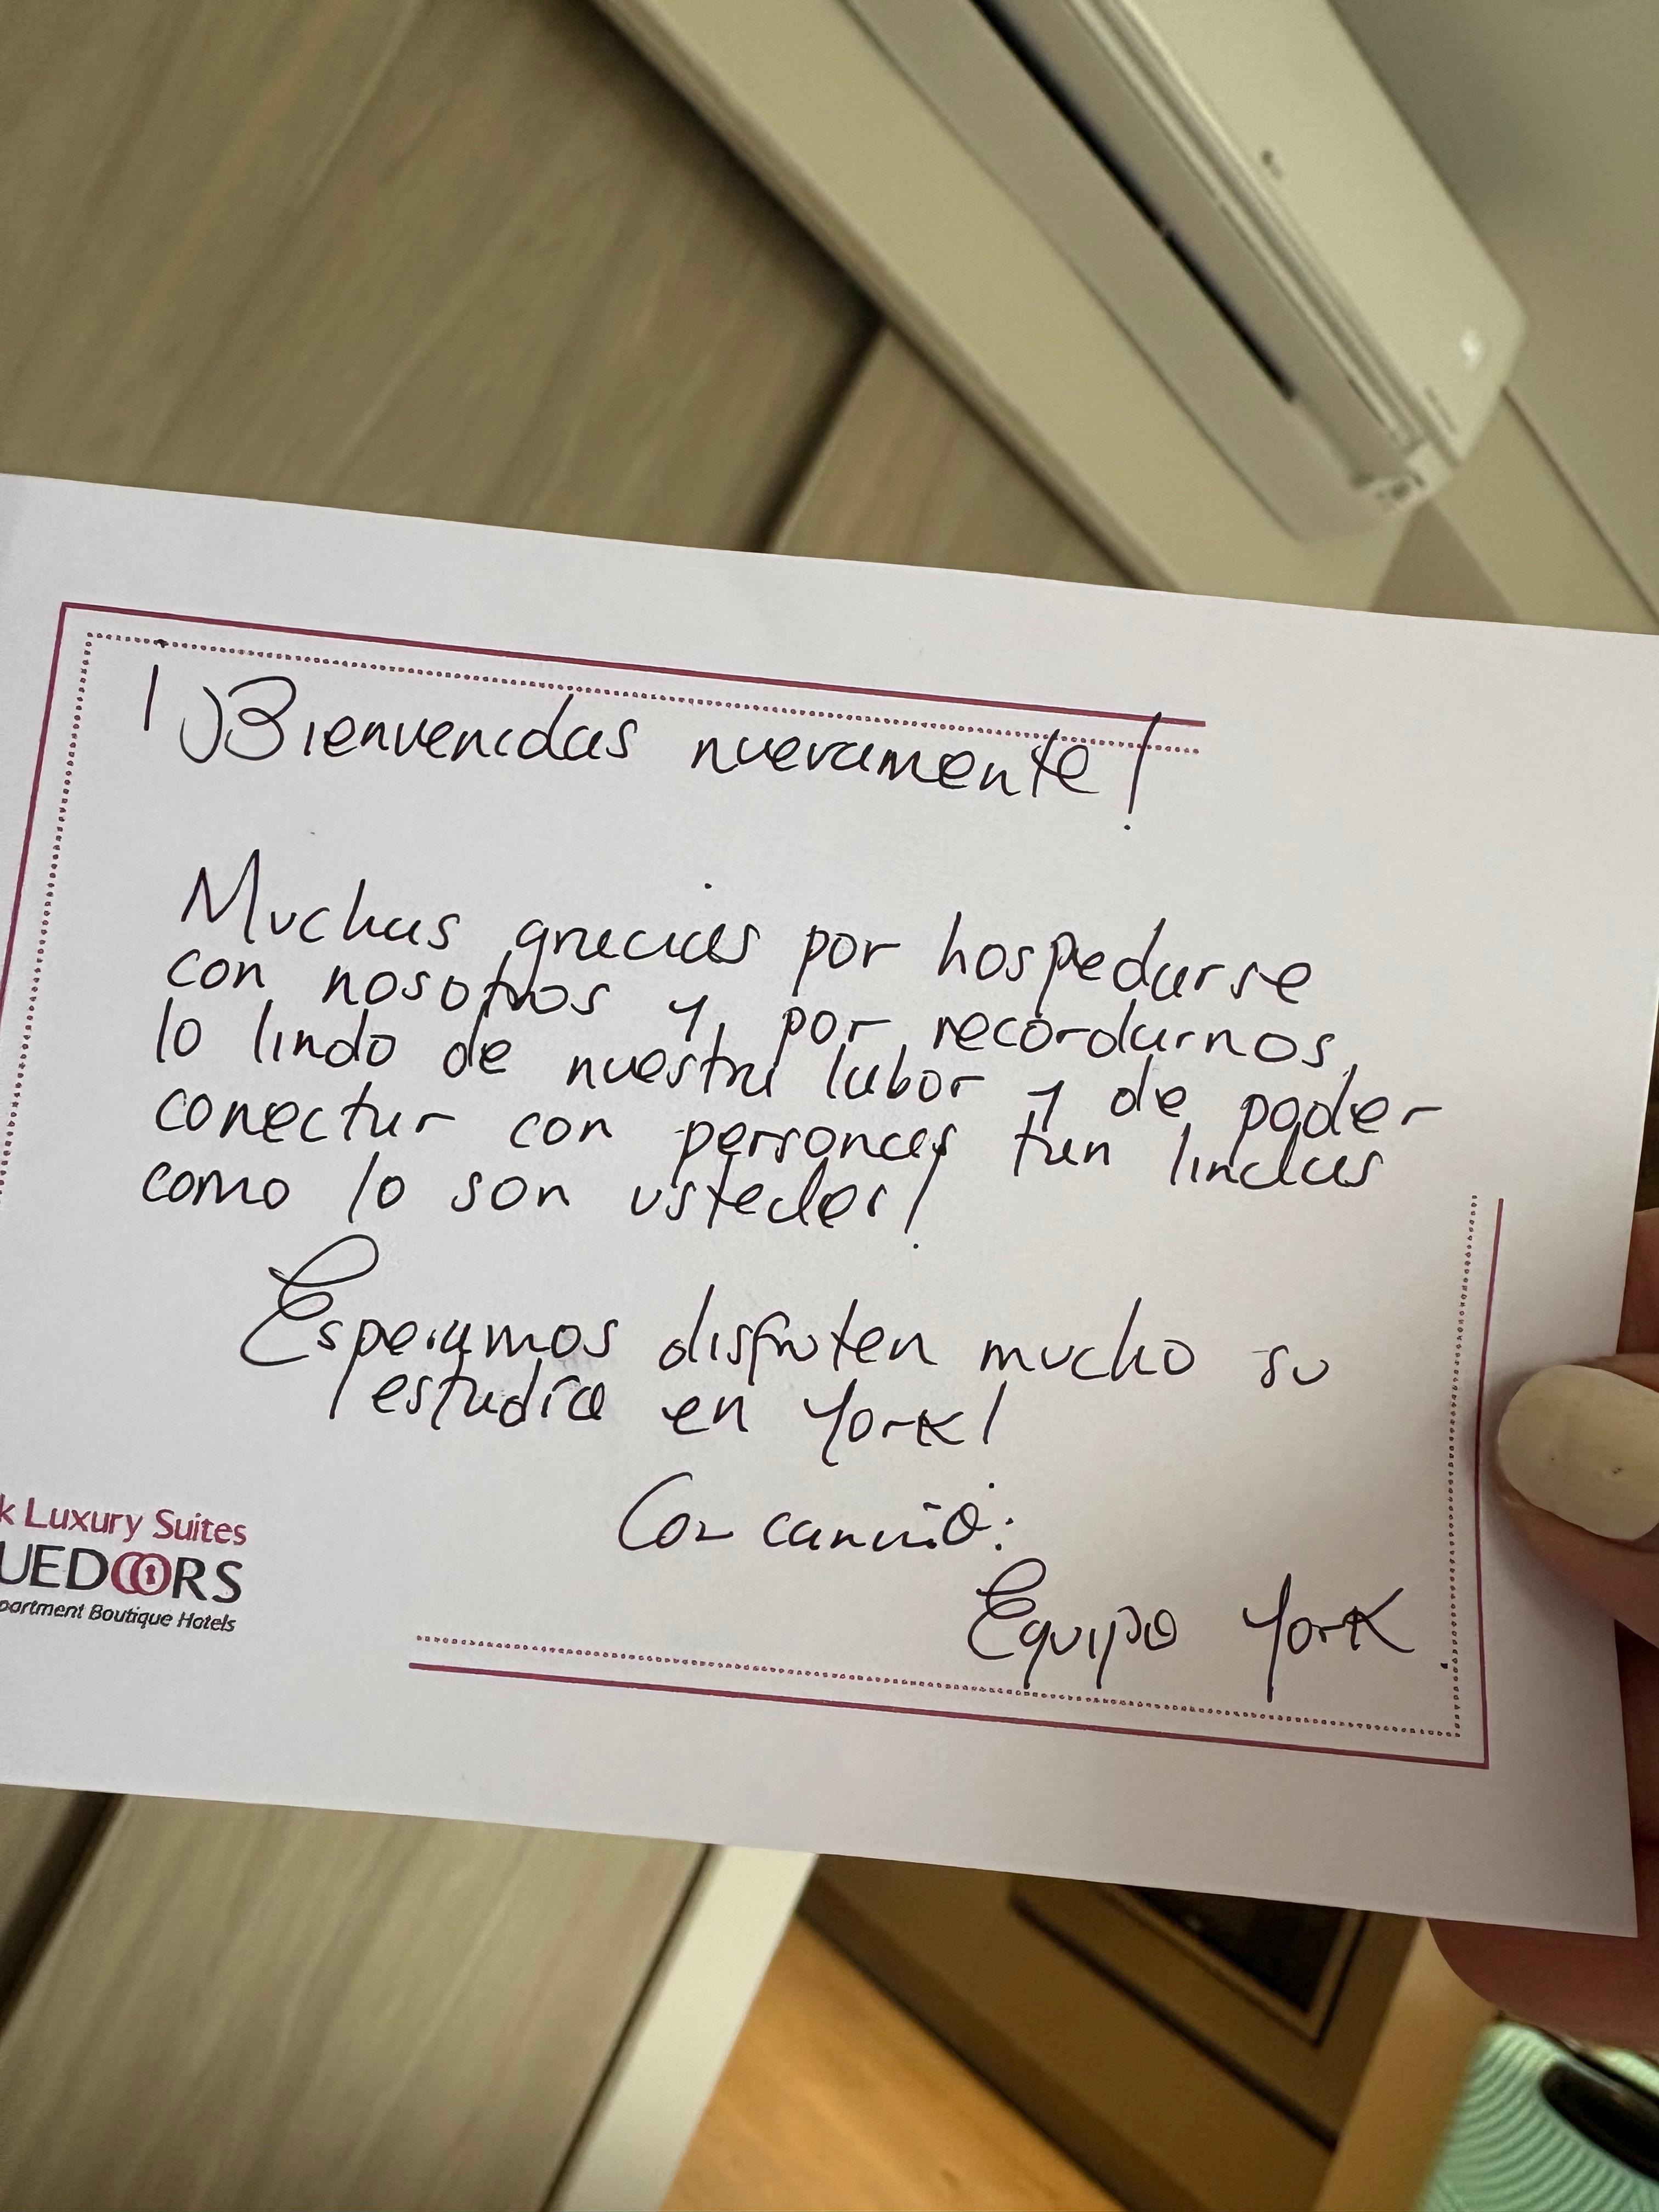 ¡Bienvenidas nuevamente!
Muchas gracias por hospedarse
con nosotros y por recordarnos
lo lindo de nuestra labor y de poder
conectar con personas tan lindas
como lo son ustedes!
Esperamos disfruten mucho su
estadía en York!
Con cariño:
Equipo York.
k Luxury Suites
UEDOORS
partment Boutique Hotels